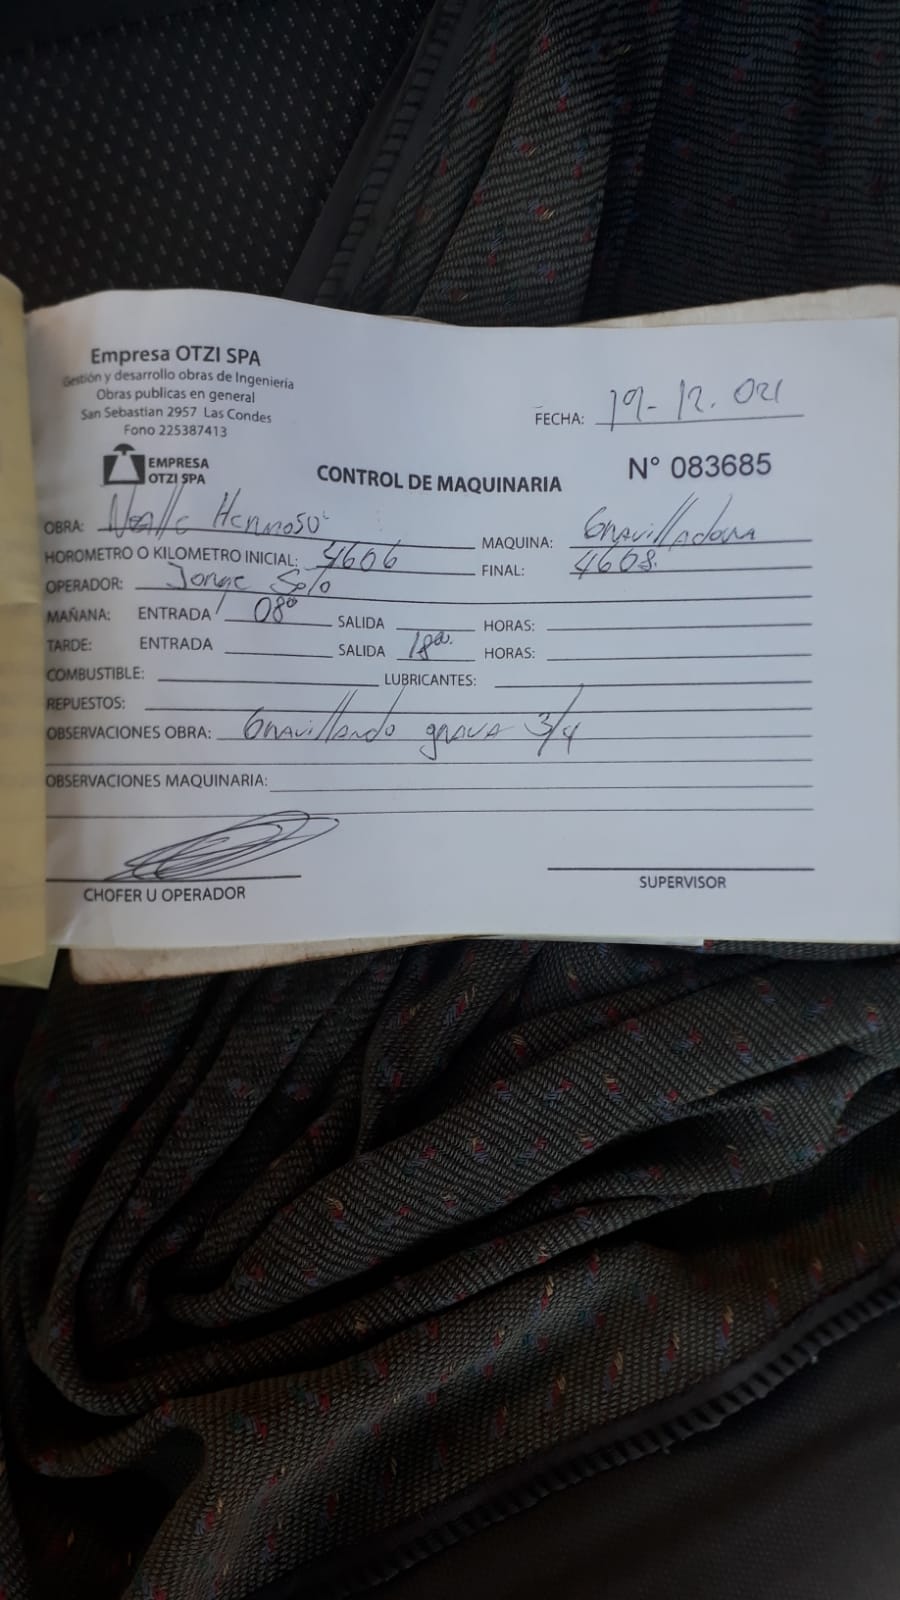 Empresa OTZI SPA
Gestión y desarrollo obras de Ingenieria
Obras publicas en general
San Sebastian 2957 Las Condes
Fono 225387413
FECHA: 19-12.021
EMPRESA
OTZI SPA
CONTROL DE MAQUINARIA
N° 083685
OBRA: Hermoso
MAQUINA: Gravilladora
HOROMETRO O KILOMETRO INICIAL: 4606
FINAL: 4608.
OPERADOR: Jorge
MAÑANA: ENTRADA 08⁰ SALIDA HORAS:
TARDE: ENTRADA SALIDA 18⁰⁰. HORAS:
COMBUSTIBLE: LUBRICANTES:
REPUESTOS:
OBSERVACIONES OBRA: Gravillando grava 3/4
OBSERVACIONES MAQUINARIA:
CHOFER U OPERADOR
SUPERVISOR